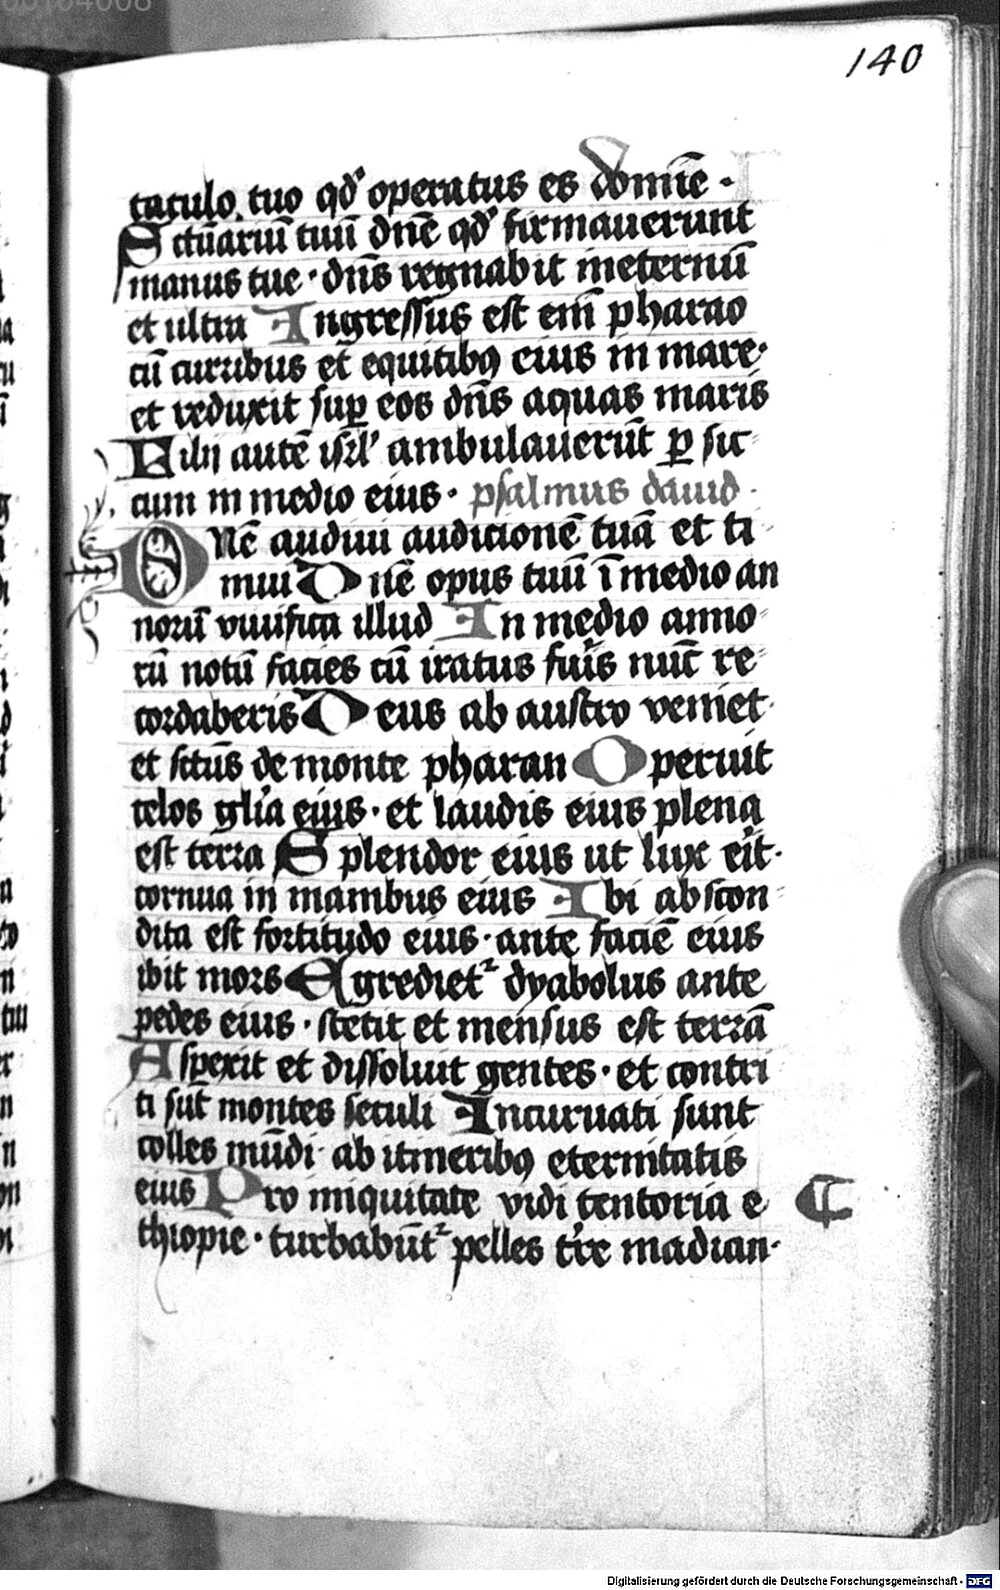 140
taculo tuo qd' operatus es domīe ·
Sctūariū tuū dnē qd' firmauerunt
manus tue · dn̄s regnabit ineternū
et ultra Ingressus est em̄ pharao
cū curribus et equitibꝯ eius in mare·
et reduxit suꝑ eos dn̄s aquas maris
Filij autē isrl' ambulauerūt ꝑ sic
cum in medio eius · psalmus dauid ·
Dnē audiui audicionē tuā et ti
mui Dnē opus tuū ī medio an
norū viuifica illud In medio anno
rū notū facies cū iratus fu'is nūc re
cordaberis Deus ab austro veniet·
et sctūs de monte pharan Operuit
celos gl'ia eius · et laudis eius plena
est terra Splendor eius ut lux erit·
cornua in manibus eius Ibi abscon
dita est fortitudo eius · ante faciē eius
ibit mors Egrediet᷑ dyabolus ante
pedes eius · stetit et mensus est terrā
Aspexit et dissoluit gentes · et contri
ti sūt montes seculi Incuruati sunt
colles mūdi · ab itineribꝯ eternitatis
eius Pro iniquitate vidi tentoria e
thiopie · turbabūt᷑ pelles t're madian·
Digitalisierung gefördert durch die Deutsche Forschungsgemeinschaft - DFG